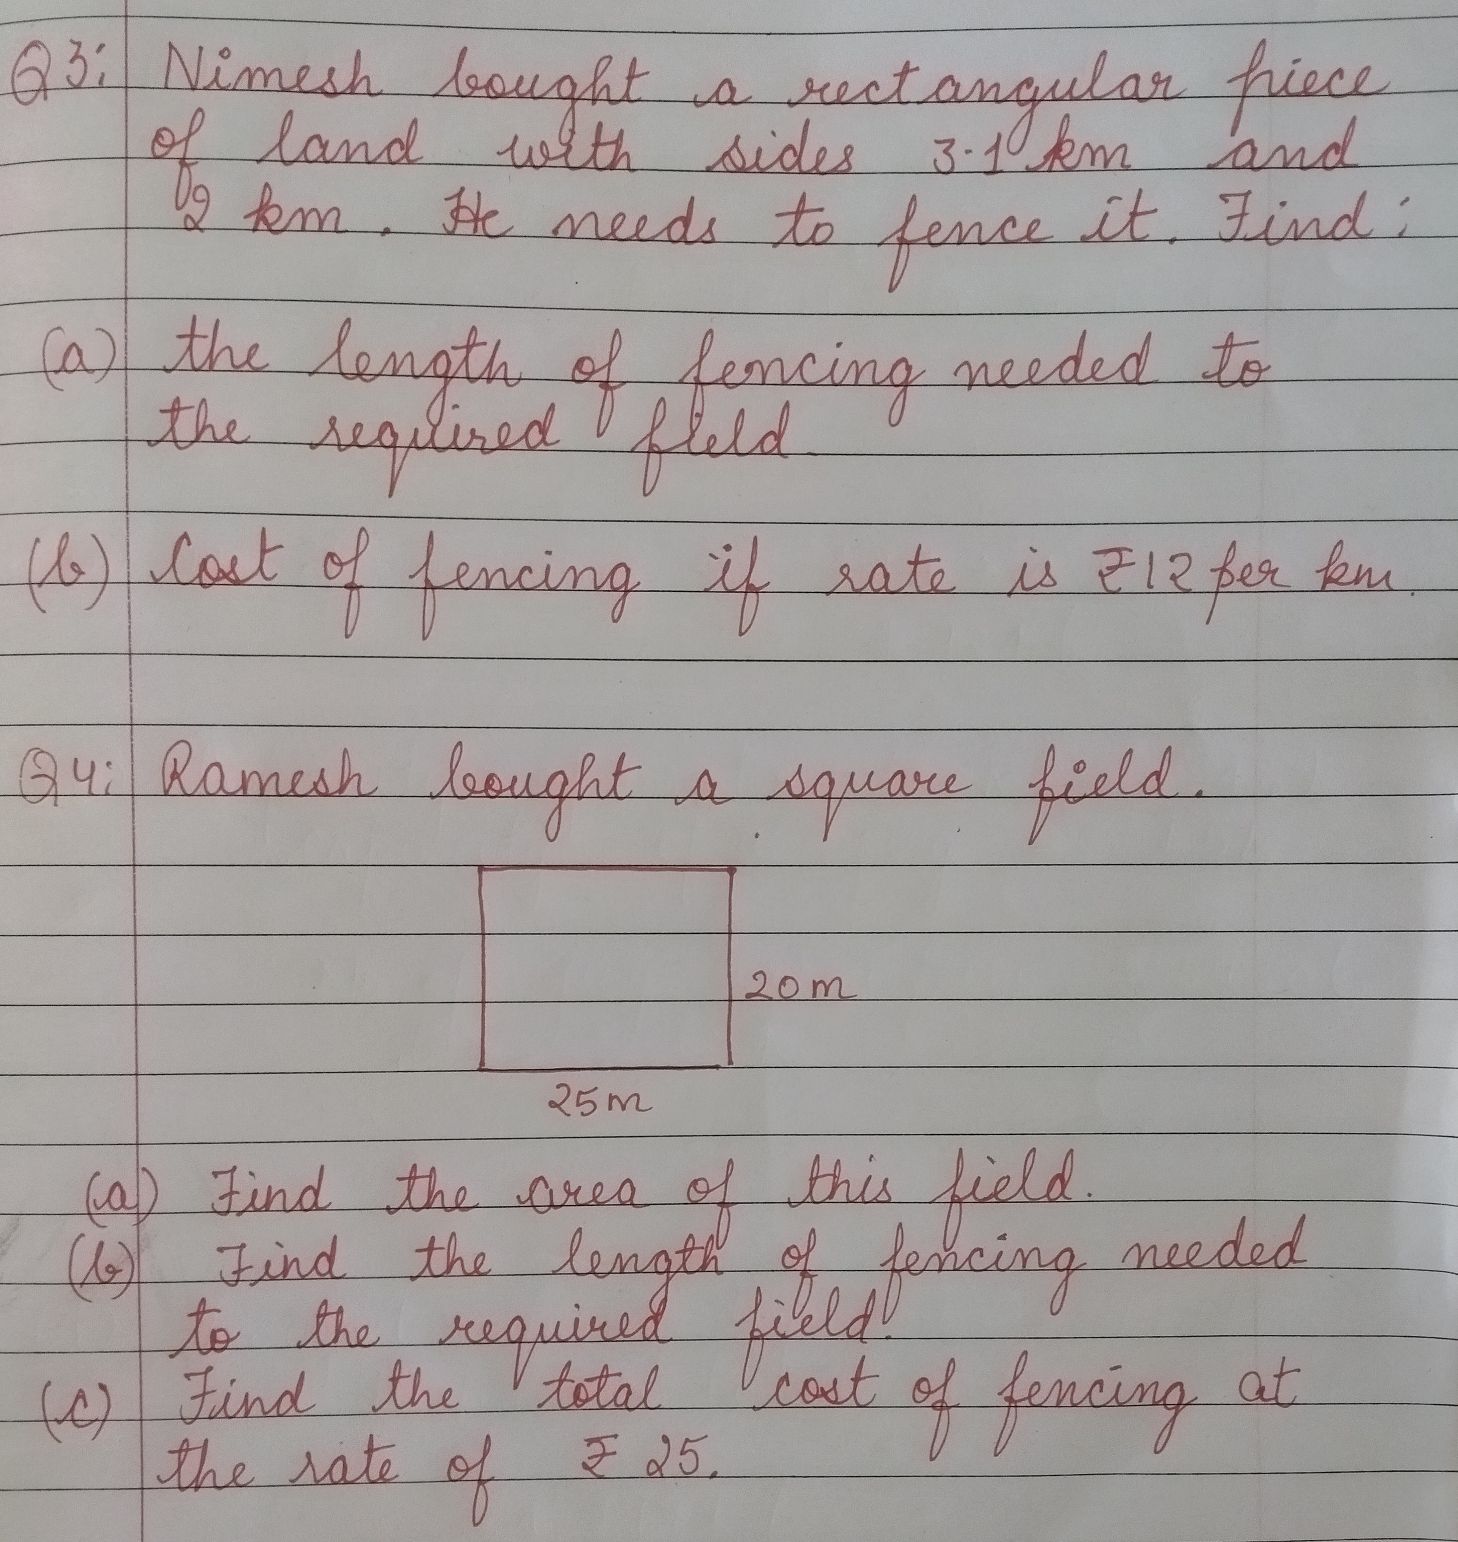 Q3: Nimesh bought a rectangular piece
of land with sides 3.1 km and
2 km. He needs to fence it. Find:
(a) the length of fencing needed to
the required field
(b) Cost of fencing if rate is ₹12 per km.
Q4: Ramesh bought a square field.
20m
25m
(a) Find the area of this field.
(b) Find the length of fencing needed
to the required field.
(c) Find the total cost of fencing at
the rate of ₹ 25.